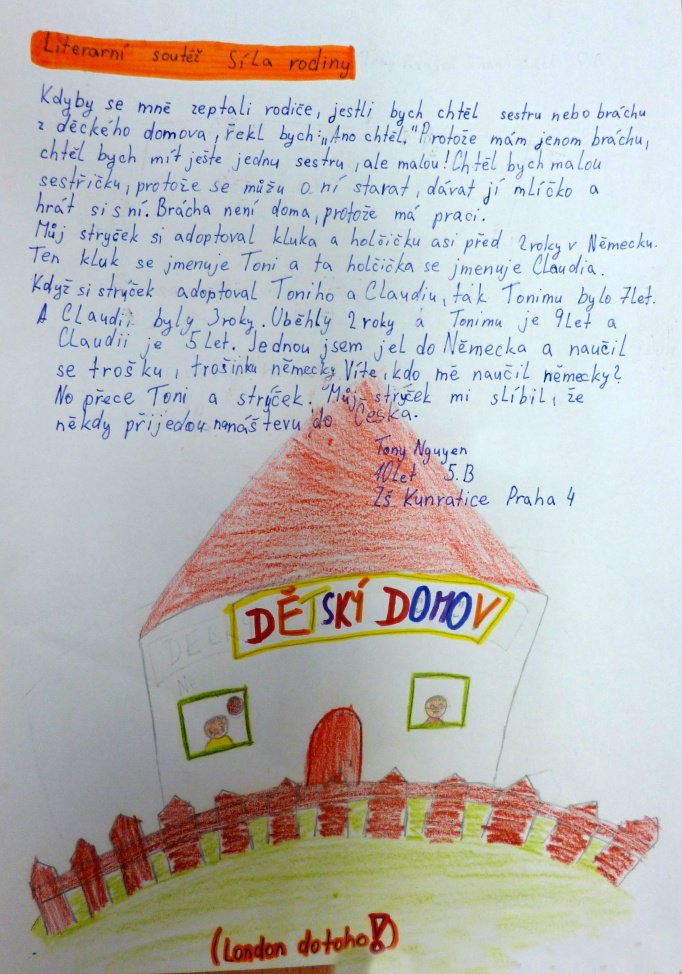 Literarní soutěž Síla rodiny
Kdyby se mně zeptali rodiče, jestli bych chtěl sestru nebo bráchu
z děckého domova, řekl bych: „Ano chtěl." Protože mám jenom bráchu,
chtěl bych mít ješte jednu sestru, ale malou! Chtěl bych malou
sestřičku, protože se můžu o ní starat, dávat jí mlíčko a
hrát si s ní. Brácha není doma, protože má praci.
Můj stryček si adoptoval kluka a holčičku asi před 2roky v Německu.
Ten kluk se jmenuje Toni a ta holčička se jmenuje Claudia.
Když si strýček adoptoval Toniho a Claudiu, tak Tonimu bylo 7let.
A Claudii byly 3roky. Uběhly 2roky a Tonimu je 9let a
Claudii je 5let. Jednou jsem jel do Německa a naučil
se trošku, trošinku německy. Víte, kdo mě naučil německy?
No přece Toni a strýček. Můj strýček mi slíbil, že
někdy přijedou na náštevu do Česka.
Tony Nguyen
10let 5.B
ZŠ Kunratice Praha 4
DĚTSKÝ DOMOV
(London dotoho!)